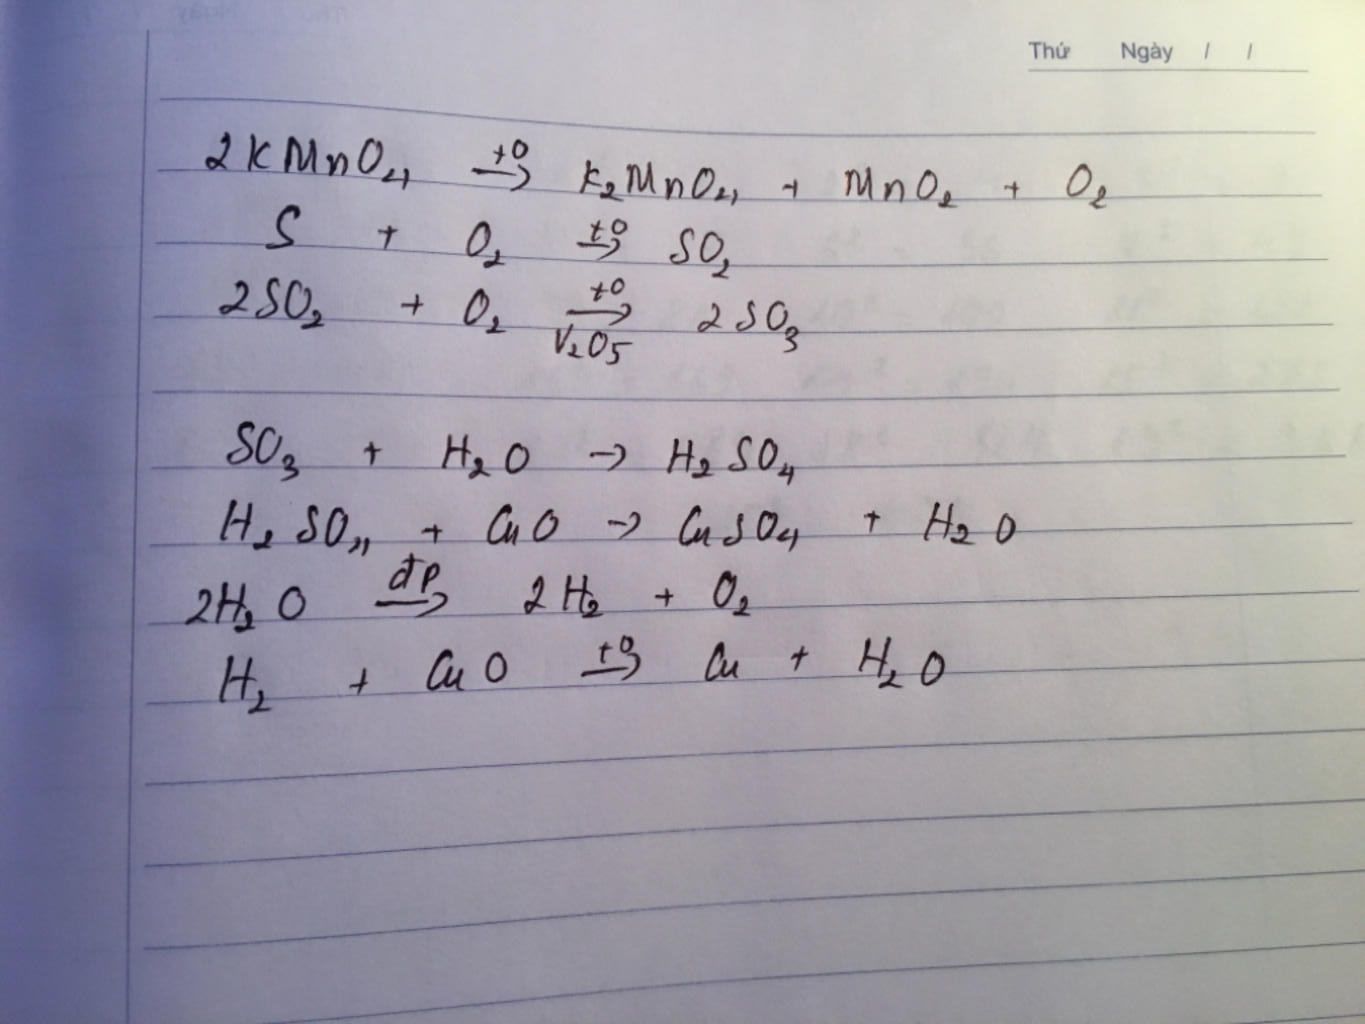 Thứ Ngày / /
2KMnO₄ →(t⁰) K₂MnO₄ + MnO₂ + O₂
S + O₂ →(t⁰) SO₂
2SO₂ + O₂ →(t⁰, V₂O₅) 2SO₃
SO₃ + H₂O → H₂SO₄
H₂SO₄ + CuO → CuSO₄ + H₂O
2H₂O →(đp) 2H₂ + O₂
H₂ + CuO →(t⁰) Cu + H₂O